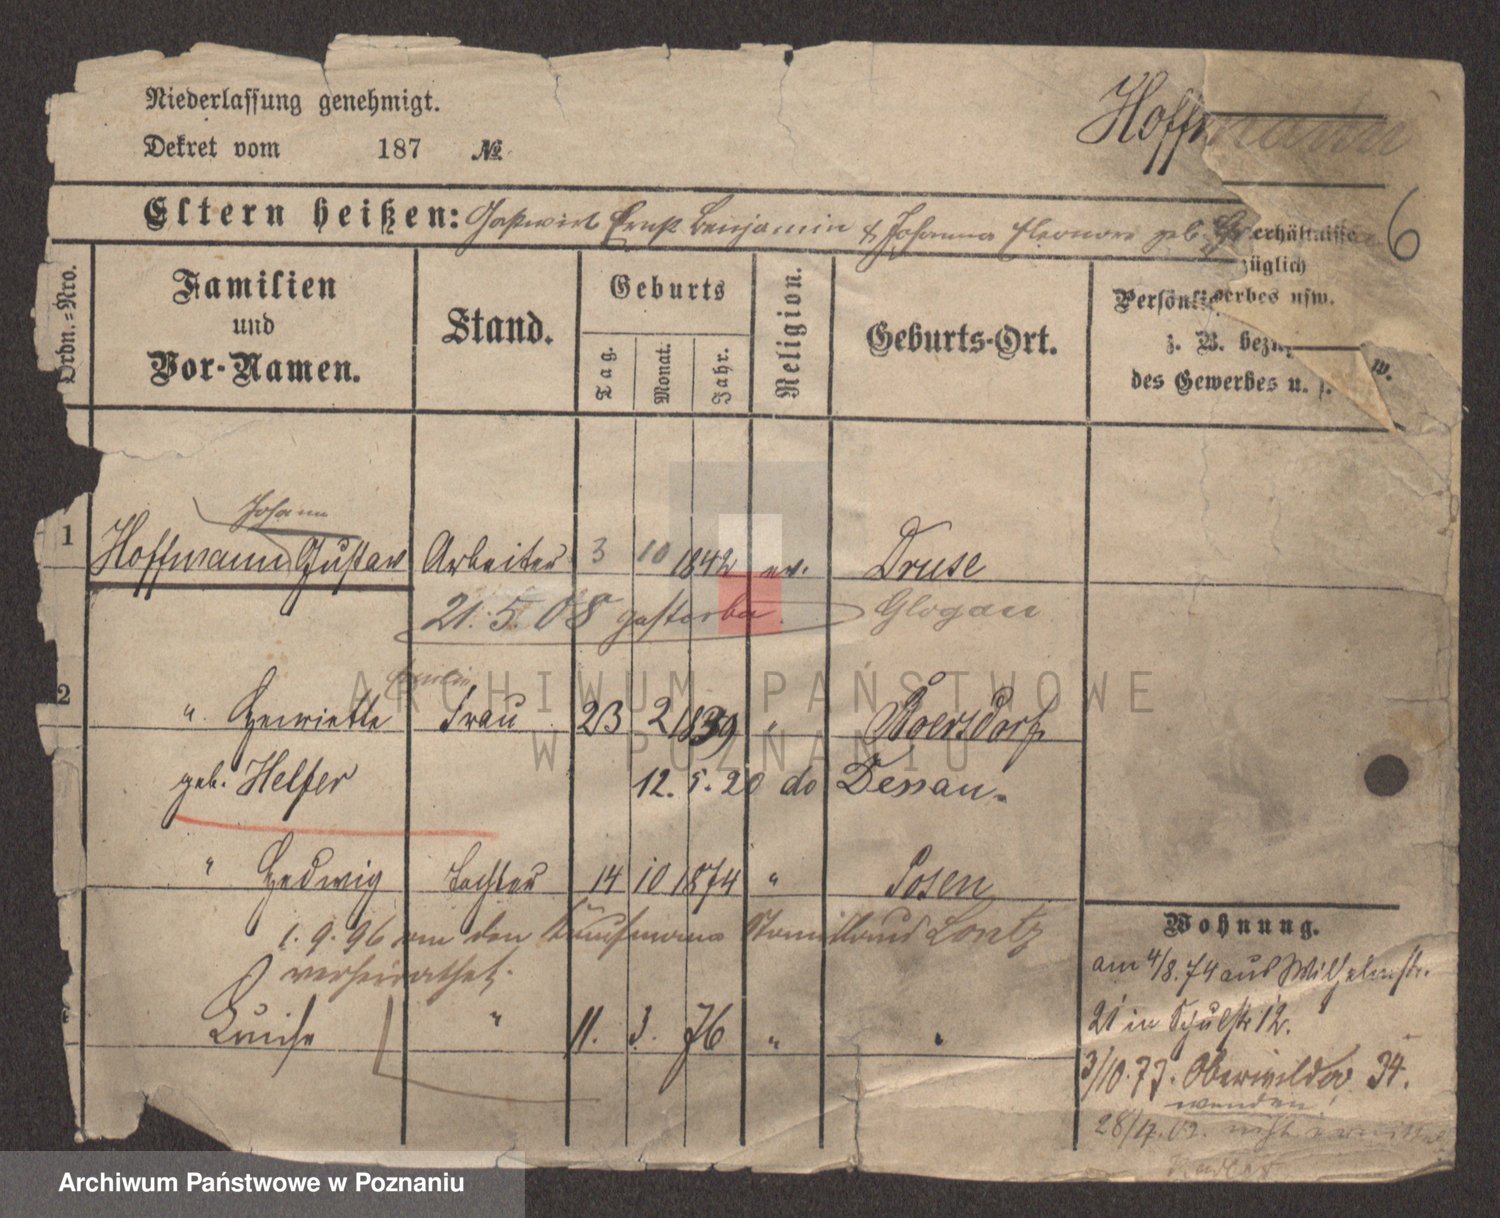 Niederlassung genehmigt.
Dekret vom 187 №
Hoffmann
6
Eltern heißen: Gastwirt Ernst Benjamin & Johanna Eleonore geb.
Ordn.-Nro.
Familien und Vor-Namen.
Stand.
Geburts
Tag. Monat. Jahr.
Religion.
Geburts-Ort.
Persönli erhältnisse
züglich
werbes usw.
z. B. bezü
des Gewerbes u. s. w.
Johann
1 Hoffmann Gustav Arbeiter 3 10 1842 ev. Druse
21. 5. 08 gestorben Glogau
2 " Henriette Frau 23 2 1839 " Baersdorf
geb. Helfer 12. 5. 20 do Dessau.
" Hedwig Tochter 14 10 1874 " Posen
1. 9. 96 an den Kaufmann Lontz
verheirathet.
Luise " 11. 3. 76 " "
Wohnung.
am 4/8. 74 aus Wilhelmstr.
21 in Schulstr 12.
3/10. 77. Oberwilda 34.
wenden!
28/4. 02. nicht ermittel
ARCHIWUM PAŃSTWOWE
W POZNANIU
Archiwum Państwowe w Poznaniu